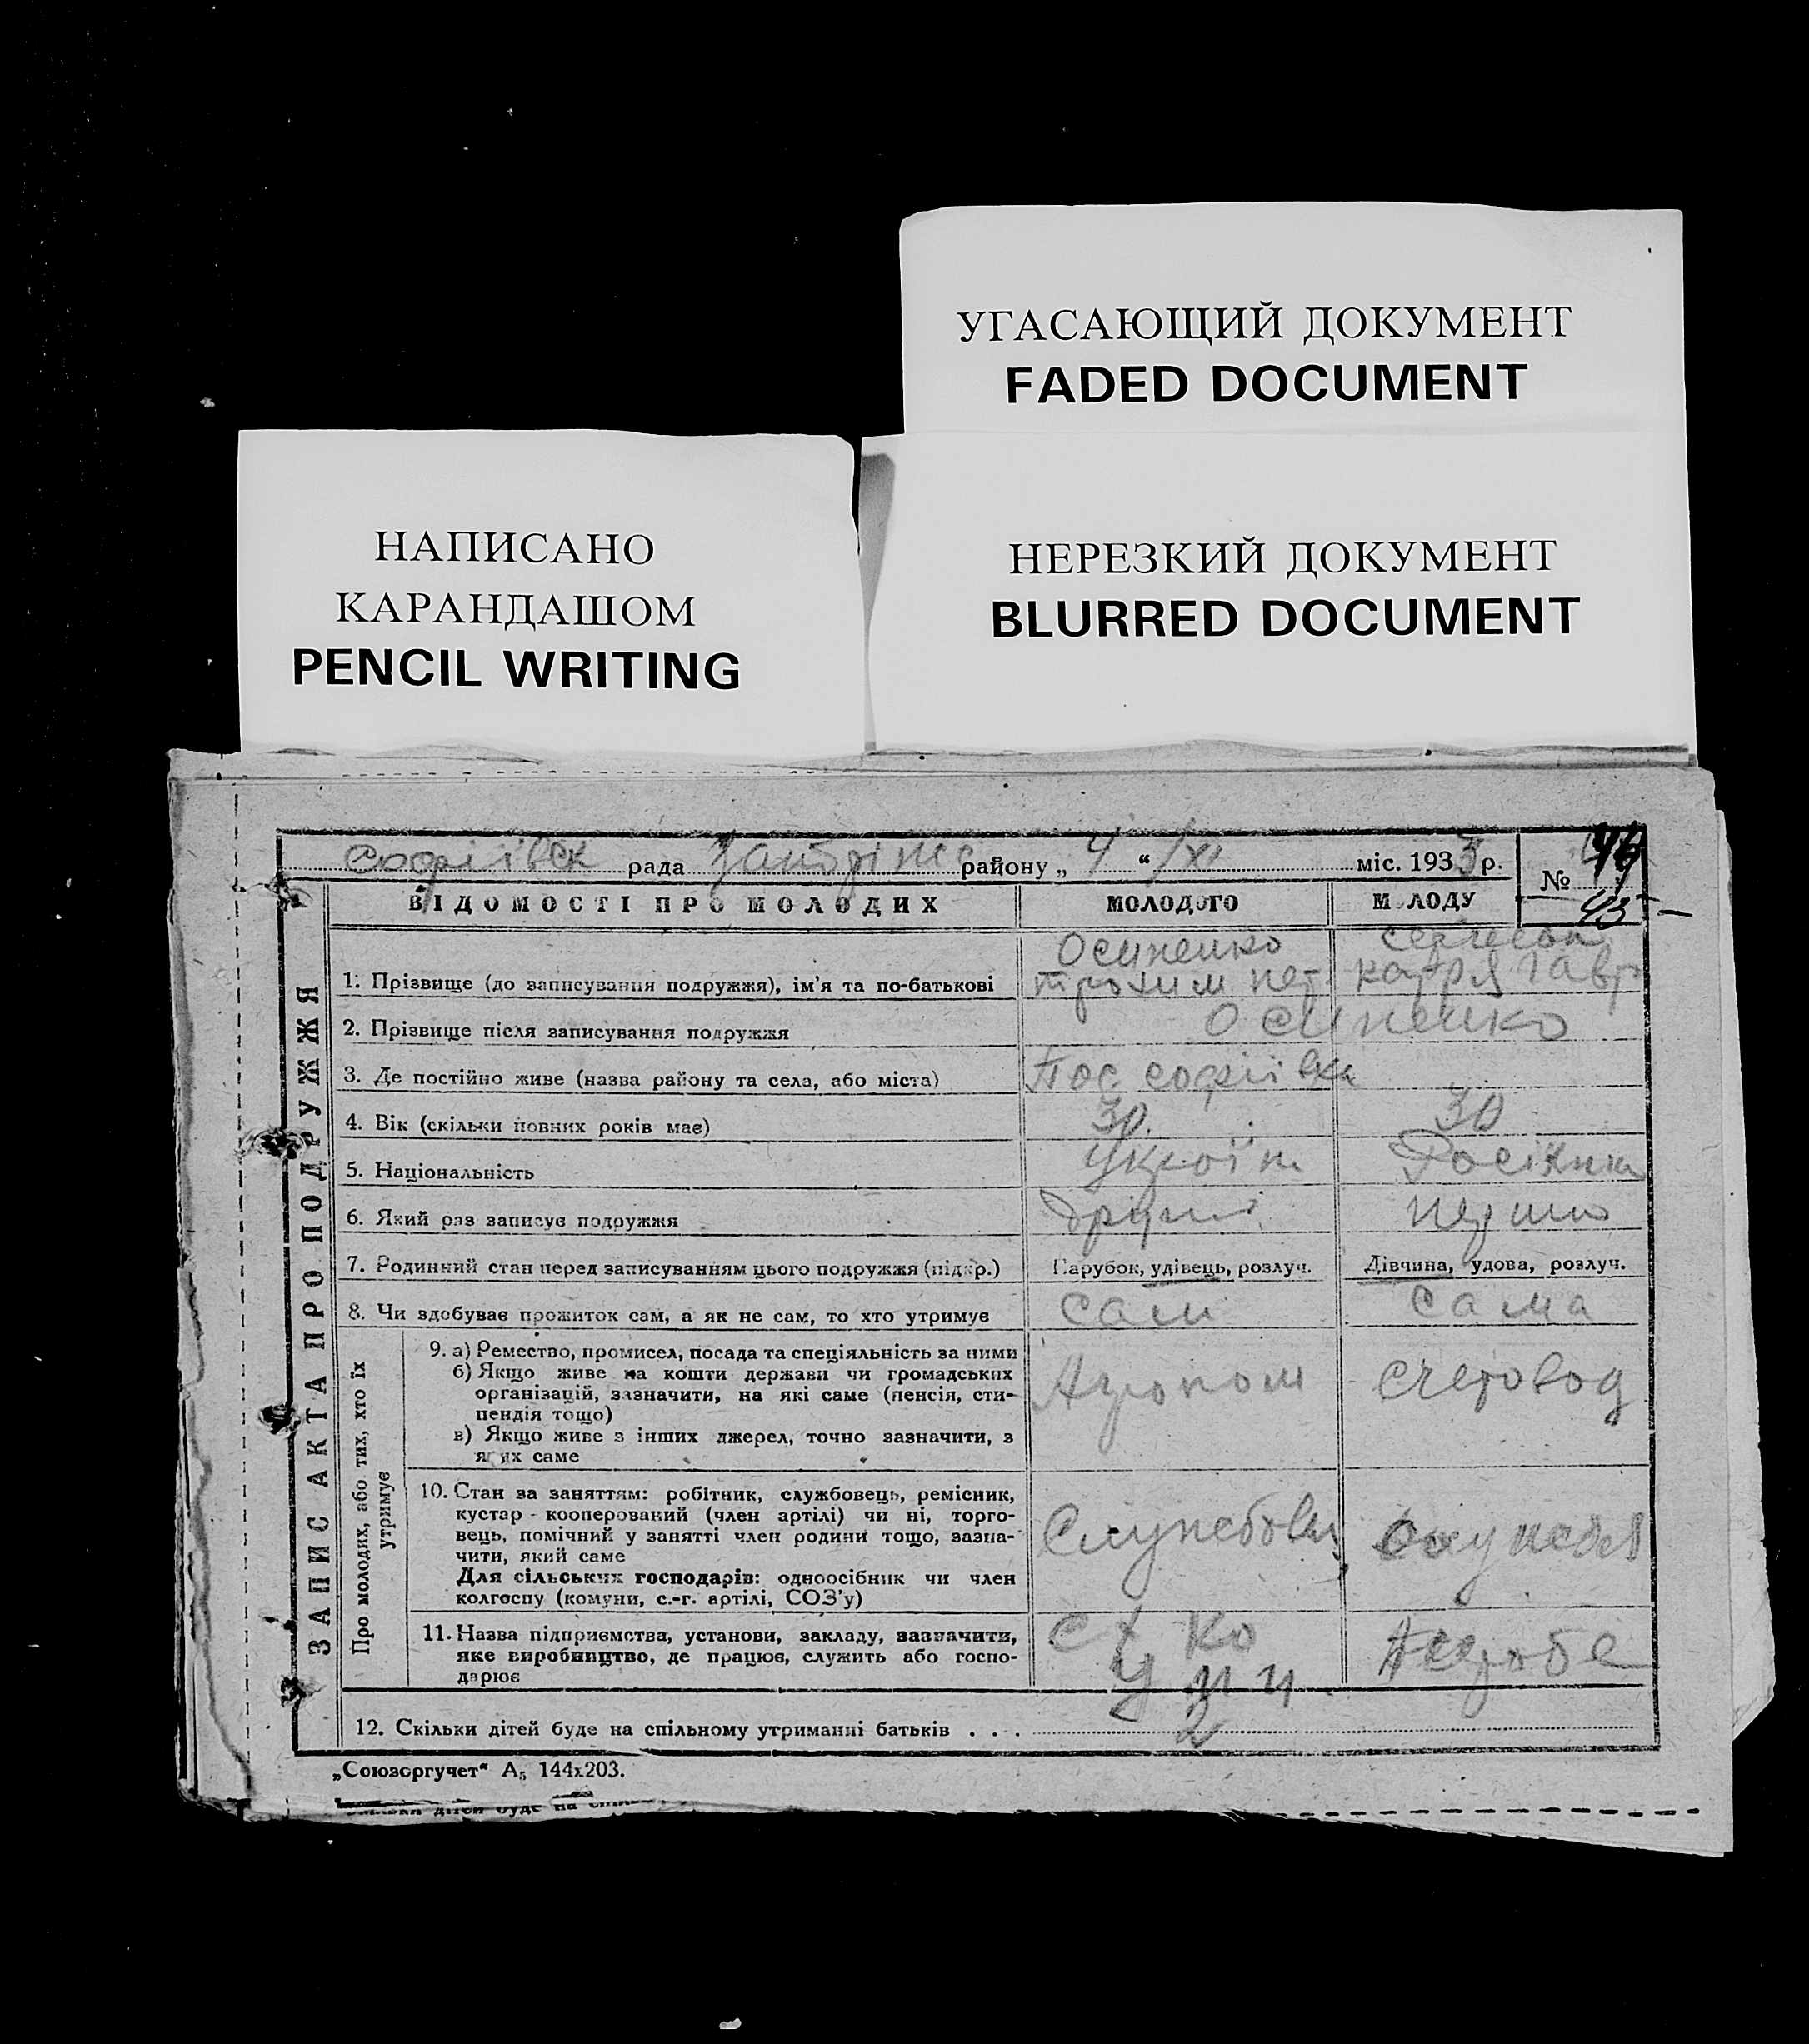 УГАСАЮЩИЙ ДОКУМЕНТ
FADED DOCUMENT
НАПИСАНО
КАРАНДАШОМ
PENCIL WRITING
НЕРЕЗКИЙ ДОКУМЕНТ
BLURRED DOCUMENT
Софіівск рада Запоріжс району „ 4 “ /XI міс. 1933 р.
№ 46
43
ВІДОМОСТІ ПРО МОЛОДИХ МОЛОДОГО МОЛОДУ
ЗАПИС АКТА ПРО ПОДРУЖЖЯ
Осипенко
1. Прізвище (до записування подружжя), ім’я та по-батькові Трохим Пет. Катря Гавр
2. Прізвище після записування подружжя Осипенко
3. Де постійно живе (назва району та села, або міста) Пос. Софіівка
4. Вік (скільки повних років має) 30. 30
5. Національність Україн Росіянка
6. Який раз записує подружжя другий перший
7. Родинний стан перед записуванням цього подружжя (підкр.) Парубок, удівець, розлуч. Дівчина, удова, розлуч.
8. Чи здобуває прожиток сам, а як не сам, то хто утримує сам сама
Про молодих, або тих, хто їх
утримує
9. а) Ремество, промисел, посада та спеціяльність за ними
б) Якщо живе на кошти держави чи громадських
організацій, зазначити, на які саме (пенсія, сти-
пендія тощо)
в) Якщо живе з інших джерел, точно зазначити, з
яких саме
Агроном Счетовод
10. Стан за заняттям: робітник, службовець, ремісник,
кустар - кооперований (член артілі) чи ні, торго-
вець, помічний у занятті член родини тощо, зазна-
чити, який саме
Для сільських господарів: одноосібник чи член
колгоспу (комуни, с.-г. артілі, СОЗ’у)
Службовец
11. Назва підприємства, установи, закладу, зазначити,
яке виробництво, де працює, служить або госпо-
дарює
12. Скільки дітей буде на спільному утриманні батьків . . . 2
„Союзоргучет“ А₅ 144х203.